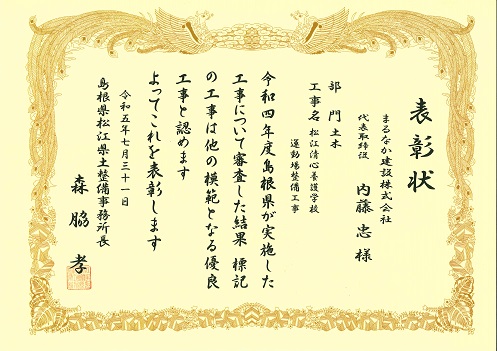 表彰状
まるなか建設株式会社
代表取締役 内藤 忠 様
部門 土木
工事名 松江清心養護学校
運動場整備工事
令和四年度島根県が実施した
工事について審査した結果 標記
の工事は他の模範となる優良
工事と認めます
よってこれを表彰します
令和五年七月三十一日
島根県松江県土整備事務所長
森脇 孝